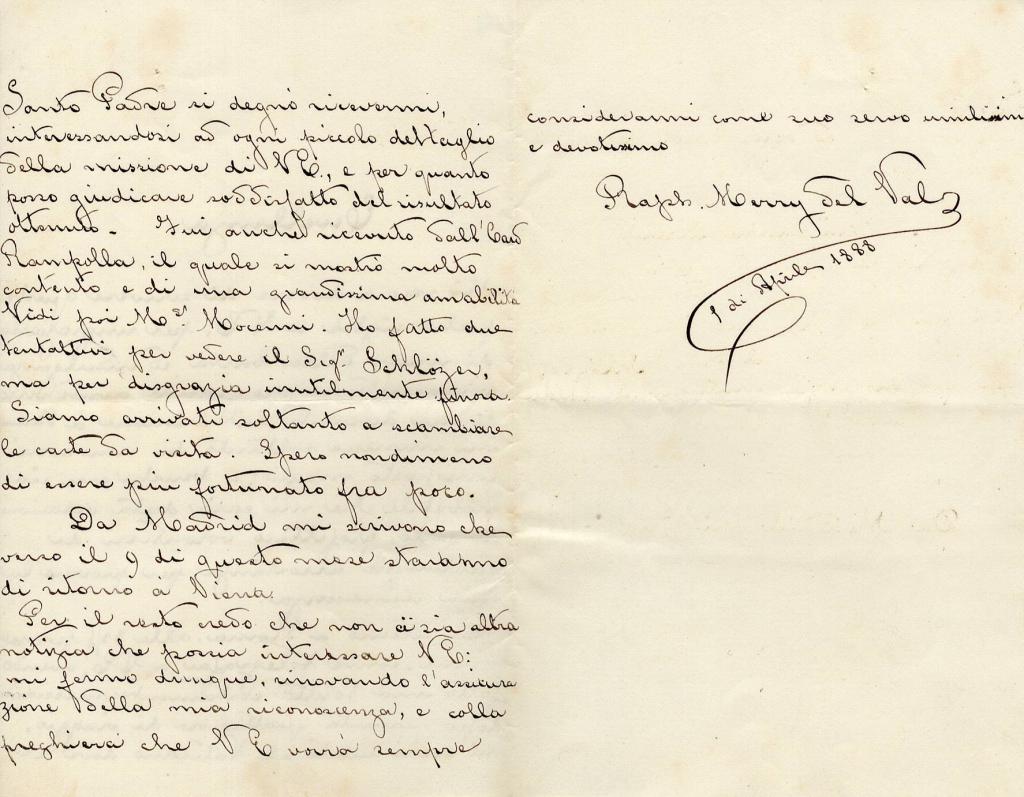 Santo Padre si degnò ricevermi,
interessandosi ad ogni piccolo dettaglio
della missione di V E., e per quanto
posso giudicare soddisfatto del risultato
ottenuto. Fui anche ricevuto dall'Card
Rampolla, il quale si mostrò molto
contento e di una grandissima amabilità
Vidi poi Mgr. Mocenni. Ho fatto due
tentativi per vedere il Sigr. Schlözer,
ma per disgrazia inutilmente finora.
Siamo arrivati soltanto a scambiare
le carte da visita. Spero nondimeno
di essere più fortunato fra poco.
Da Madrid mi scrivono che
verso il 9 di questo mese staranno
di ritorno à Viena.
Per il resto credo che non ci sia altra
notizia che possia interessare V E:
mi fermo dunque, rinovando l'assicura
zione della mia riconoscenza, e colla
preghiera che V E vorrà sempre
considerarmi come suo servo umilissimo
e devotissimo
Raph. Merry del Val
1 di Aprile 1888